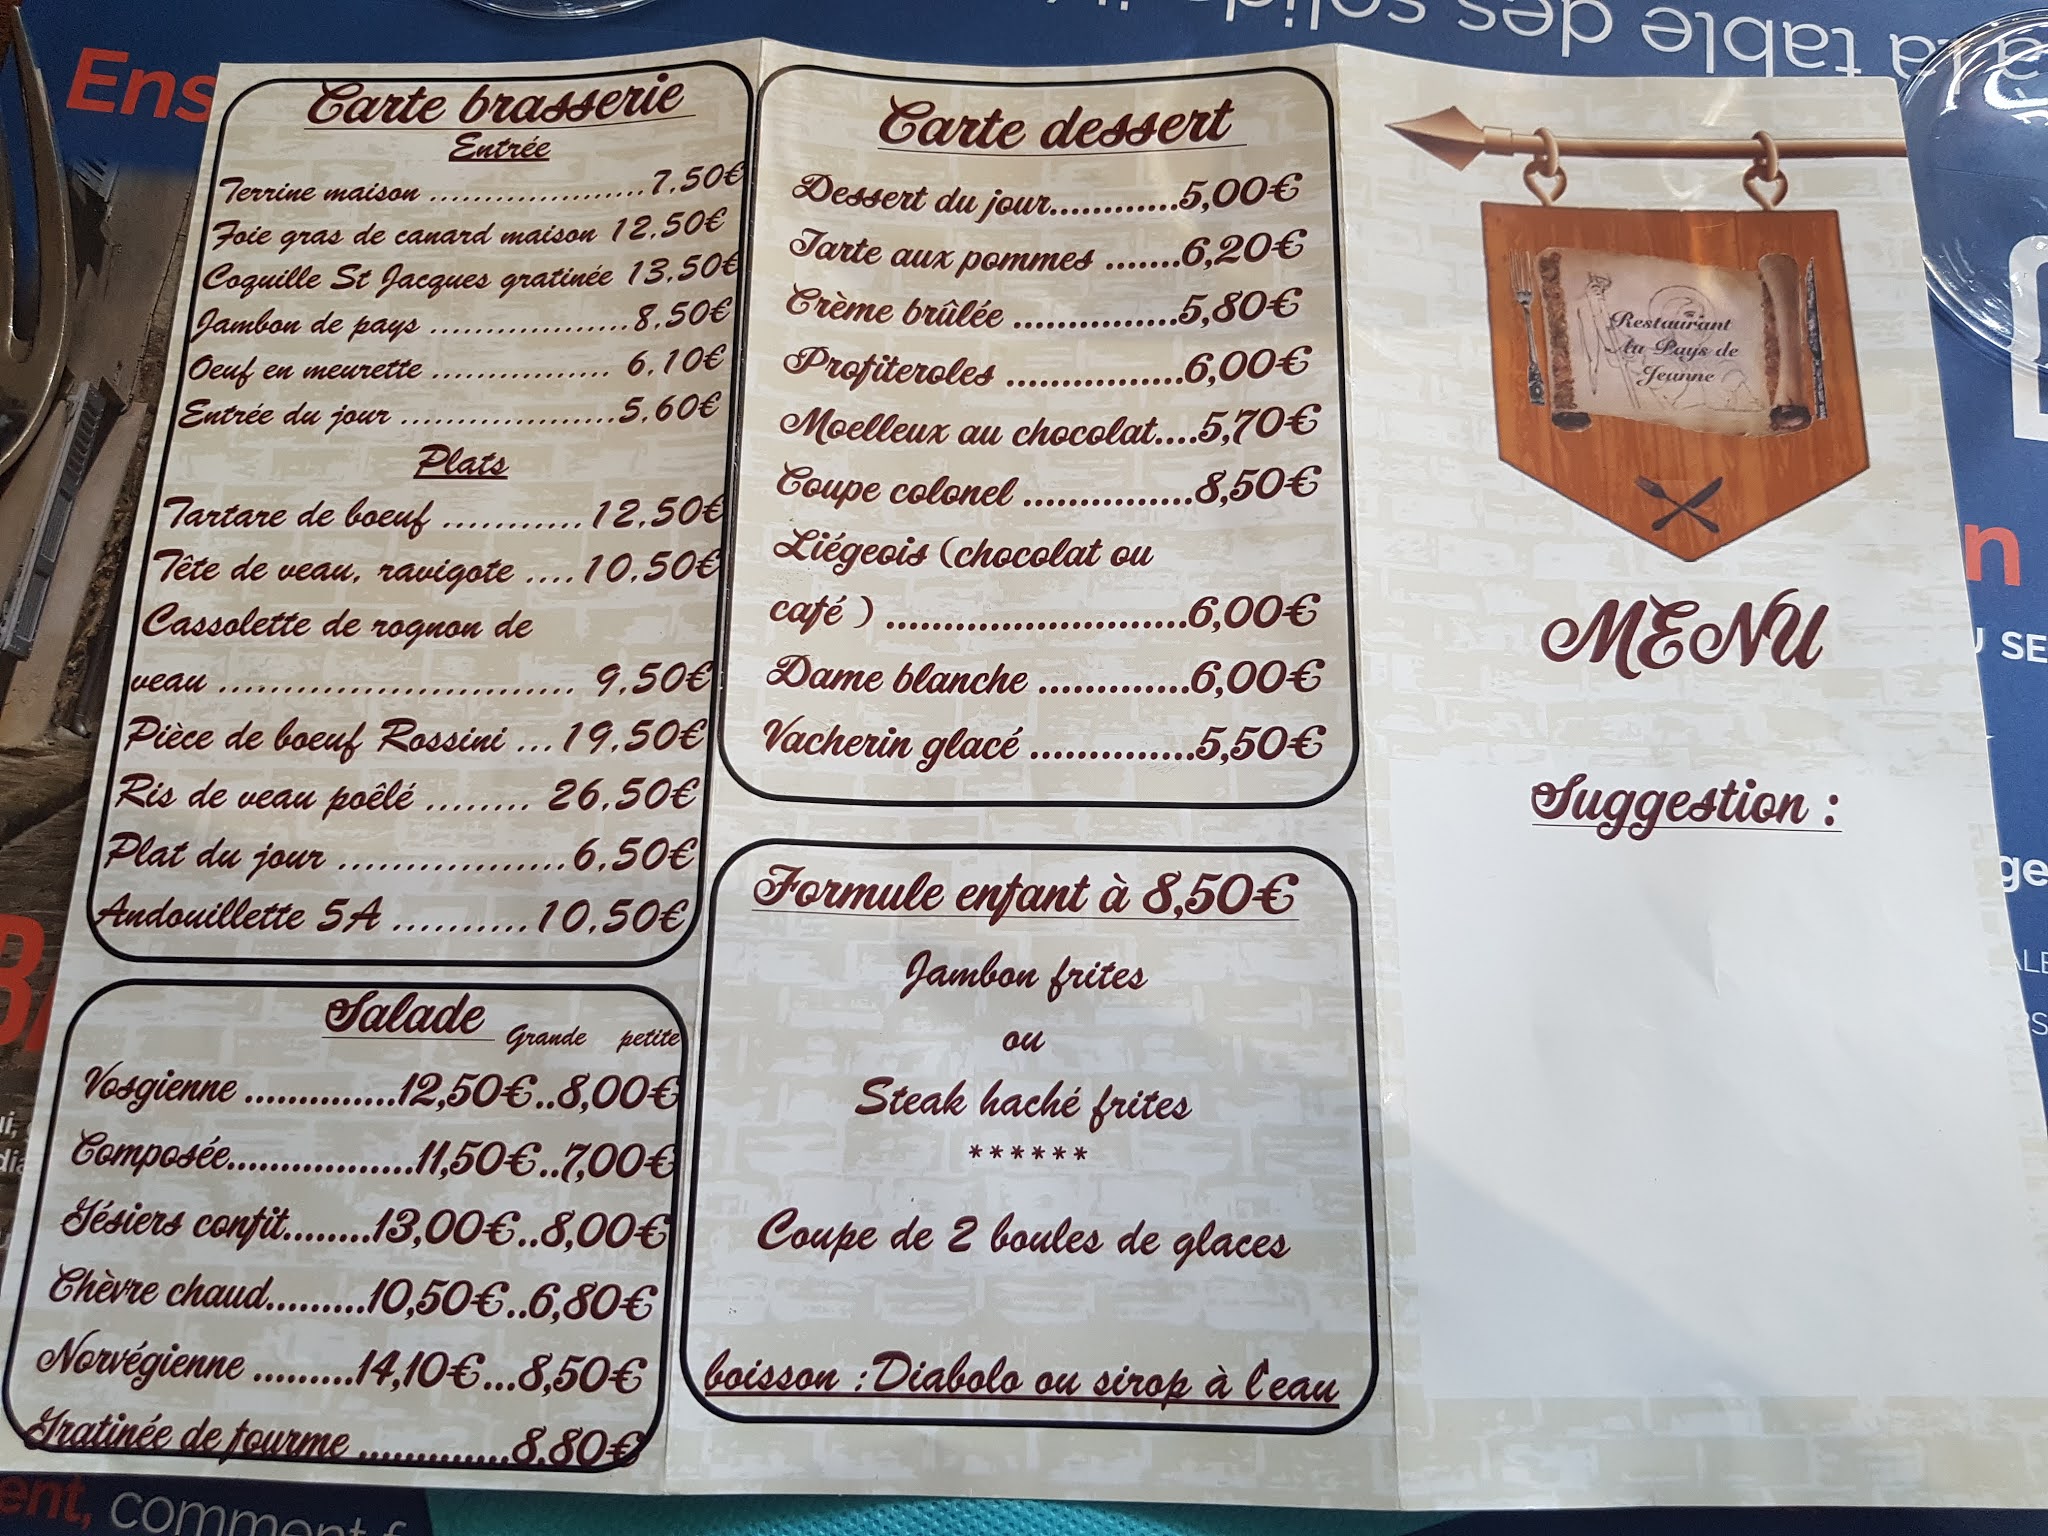 Carte brasserie
Entrée
Terrine maison ....................7.50€
Foie gras de canard maison 12.50€
Coquille St Jacques gratinée 13.50€
Jambon de pays ..................8.50€
Oeuf en meurette ................ 6.10€
Entrée du jour ...................5.60€
Plats
Tartare de boeuf ............12.50€
Tête de veau, ravigote ....10.50€
Cassolette de rognon de
veau ............................ 9.50€
Pièce de boeuf Rossini ...19.50€
Ris de veau poêlé ........ 26.50€
Plat du jour ..................6.50€
Andouillette 5A ...........10.50€
Salade Grande petite
Vosgienne ..............12,50€..8,00€
Composée.................11,50€..7,00€
Gésiers confit........13,00€..8,00€
Chèvre chaud.........10,50€..6,80€
Norvégienne .........14,10€...8,50€
Gratinée de fourme .............8,80€
Carte dessert
Dessert du jour............5,00€
Tarte aux pommes .......6,20€
Crème brûlée ...............5,80€
Profiteroles ................6,00€
Moelleux au chocolat....5,70€
Coupe colonel ...............8,50€
Liégeois (chocolat ou
café ) ..........................6,00€
Dame blanche .............6,00€
Vacherin glacé ..............5,50€
Formule enfant à 8,50€
Jambon frites
ou
Steak haché frites
******
Coupe de 2 boules de glaces
boisson : Diabolo ou sirop à l'eau
Restaurant
Au Pays de
Jeanne
MENU
Suggestion :
Ens
à la table des
ent, comment f